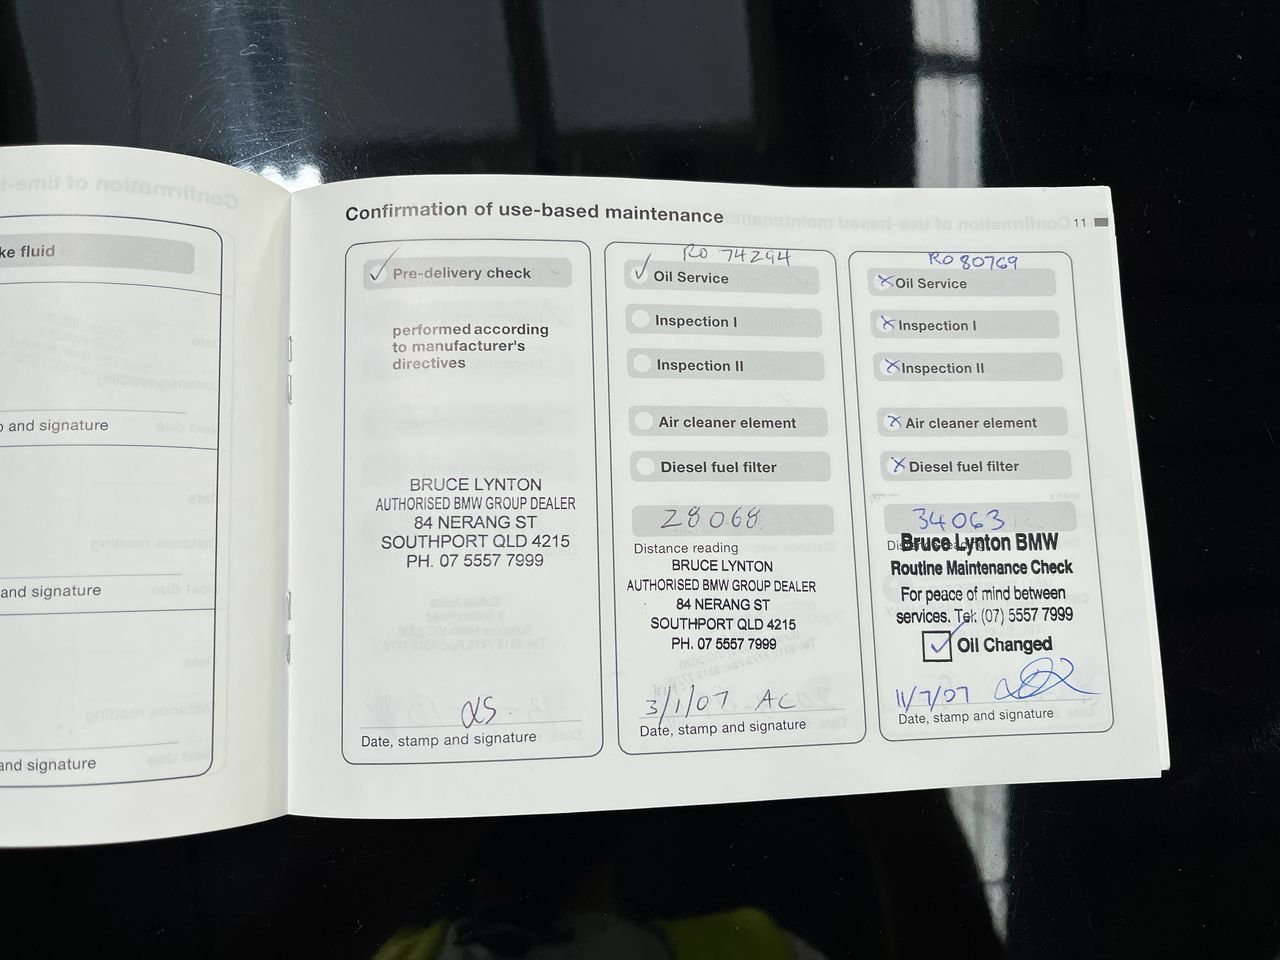 ke fluid
p and signature
and signature
and signature
Confirmation of use-based maintenance
11
Pre-delivery check
performed according
to manufacturer's
directives
BRUCE LYNTON
AUTHORISED BMW GROUP DEALER
84 NERANG ST
SOUTHPORT QLD 4215
PH. 07 5557 7999
Date, stamp and signature
RO 74294
Oil Service
Inspection I
Inspection II
Air cleaner element
Diesel fuel filter
28068
Distance reading
BRUCE LYNTON
AUTHORISED BMW GROUP DEALER
84 NERANG ST
SOUTHPORT QLD 4215
PH. 07 5557 7999
3/1/07 AC
Date, stamp and signature
RO 80769
Oil Service
Inspection I
Inspection II
Air cleaner element
Diesel fuel filter
34063
Distance reading
Bruce Lynton BMW
Routine Maintenance Check
For peace of mind between
services. Tel: (07) 5557 7999
Oil Changed
11/7/07
Date, stamp and signature